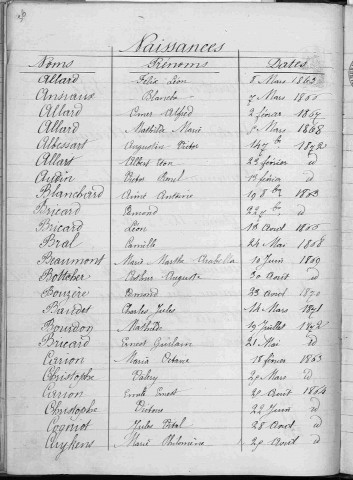 Naissances
Noms Prénoms Dates
Allard Félix Léon 8 Mars 1863
Ansiaux Blanche 7 Mars
Allard Omer Alfred 2 févier 1867
Allard Mathilde Marie Mars 1868
Albessart Augustin Victor 14 7bre 1872
Allart Albert Léon 23 févier d
Audin Victor 13 févier d
Blanchard Aimé Antoine 19 8bre 1863
Bricard Edmond 22 7bre d
Bricard Léon 13 Aout
Bral Camille 24 Mai 1868
Beaumont Marie Marthe 10 Juin 1869
Bottcher Auguste 30 Aout d
Bouzère Edmond 23 Aout 1870
Baudet Charles Jules 14 Mars 1871
Bourdon Mathilde 19 Juillet 1872
Bricard Ernest Guislain 21 Mai d
Carrion Maria 18 févier 1863
Christophe Valéry 29 Mars d
Carrion Emile Ernest 21 Aout 1864
Christophe 22 Juin d
Cogniot Jules 28 Aout d
Cuykens Marie Philomène 29 Aout d